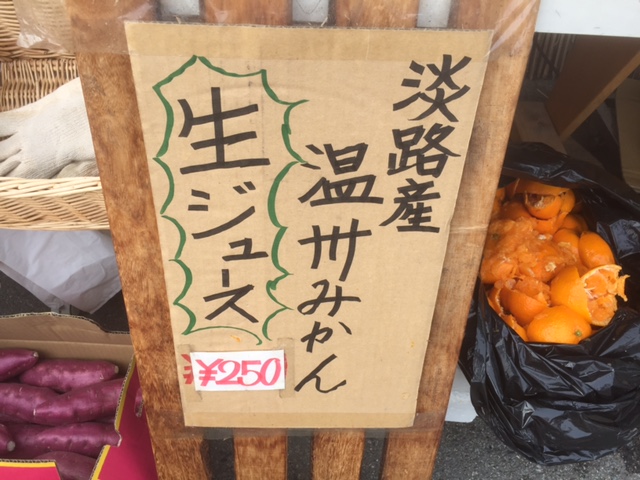 淡路産
温州みかん
生ジュース
¥250